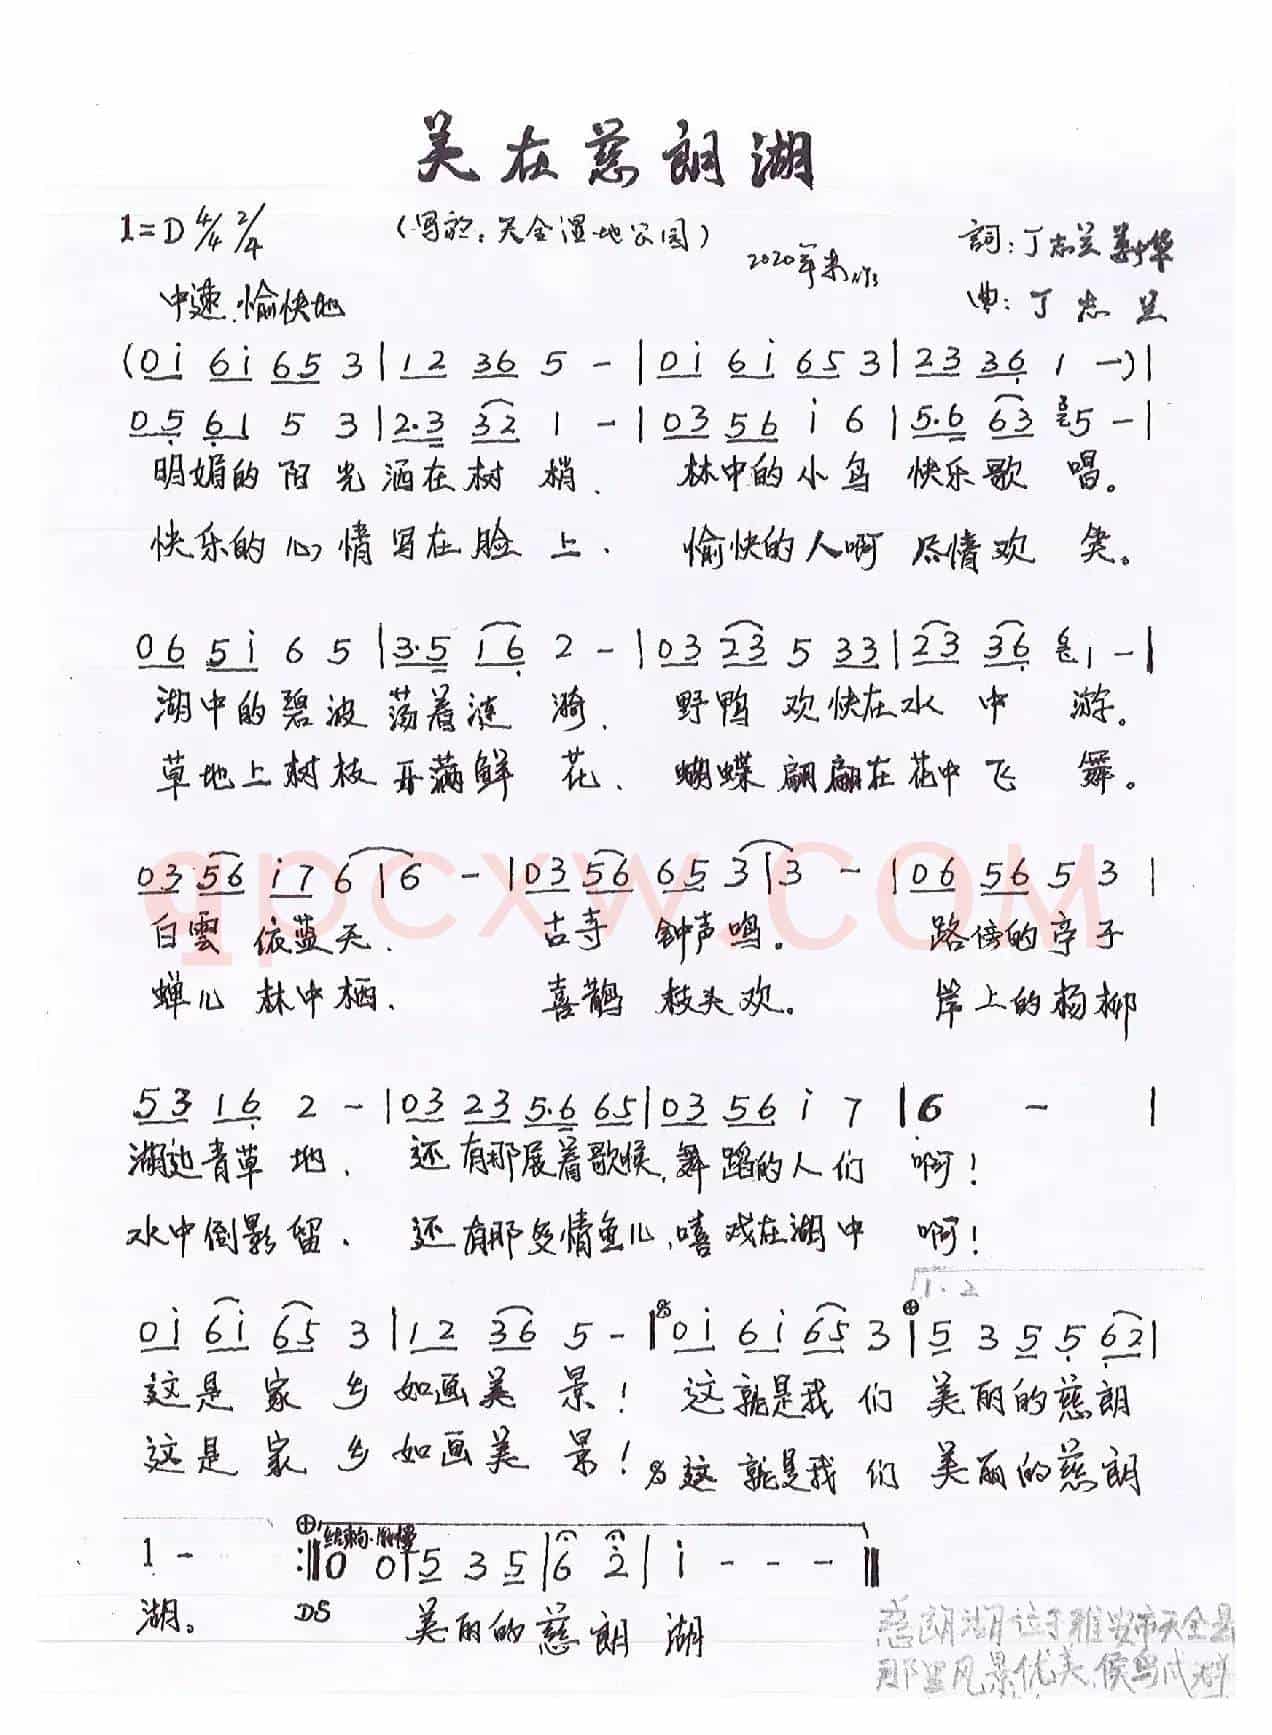 美在慈朗湖
1=D 4/4 2/4
(写於：天全湿地公园)
2020年末作
詞：丁志兰 姜少华
曲：丁志兰
中速.愉快地
(0 i 6 i 6 5 3 | 1 2 3 6 5 - | 0 i 6 i 6 5 3 | 2 3 3 6 1 -) |
0 5 6 1 5 3 | 2. 3 3 2 1 - | 0 3 5 6 i 6 | 5. 6 6 3 5 - |
明媚的阳光洒在树梢、 林中的小鸟快乐歌唱。
快乐的心情写在脸上、 愉快的人啊尽情欢笑。
0 6 5 i 6 5 | 3. 5 1 6 2 - | 0 3 2 3 5 3 3 | 2 3 3 6 1 - |
湖中的碧波荡着涟漪、 野鸭欢快在水中游。
草地上树枝开满鲜花、 蝴蝶翩翩在花中飞舞。
0 3 5 6 i 7 6 | 6 - | 0 3 5 6 6 5 3 | 3 - | 0 6 5 6 5 3 |
白雲依蓝天、 古寺钟声鸣。 路傍的亭子
蝉儿林中栖、 喜鹊枝头欢。 岸上的杨柳
5 3 1 6 2 - | 0 3 2 3 5. 6 6 5 | 0 3 5 6 i 7 | 6 - |
湖边青草地、 还有那展着歌候,舞蹈的人们 啊！
水中倒影留、 还有那多情鱼儿,嘻戏在湖中 啊！
1. 2
0 i 6 i 6 5 3 | 1 2 3 6 5 - | 0 i 6 i 6 5 3 | 5 3 5 5 6 2 |
这是家乡如画美景！ 这就是我们美丽的慈朗
这是家乡如画美景！ 这就是我们美丽的慈朗
结束句
1 - :‖ 0 0 | 5 3 5 | 6 2 | i - - - ‖
湖。 DS 美丽的慈朗湖
慈朗湖位于雅安市天全县
那里风景优美,候鸟成群
qpcxw.COM